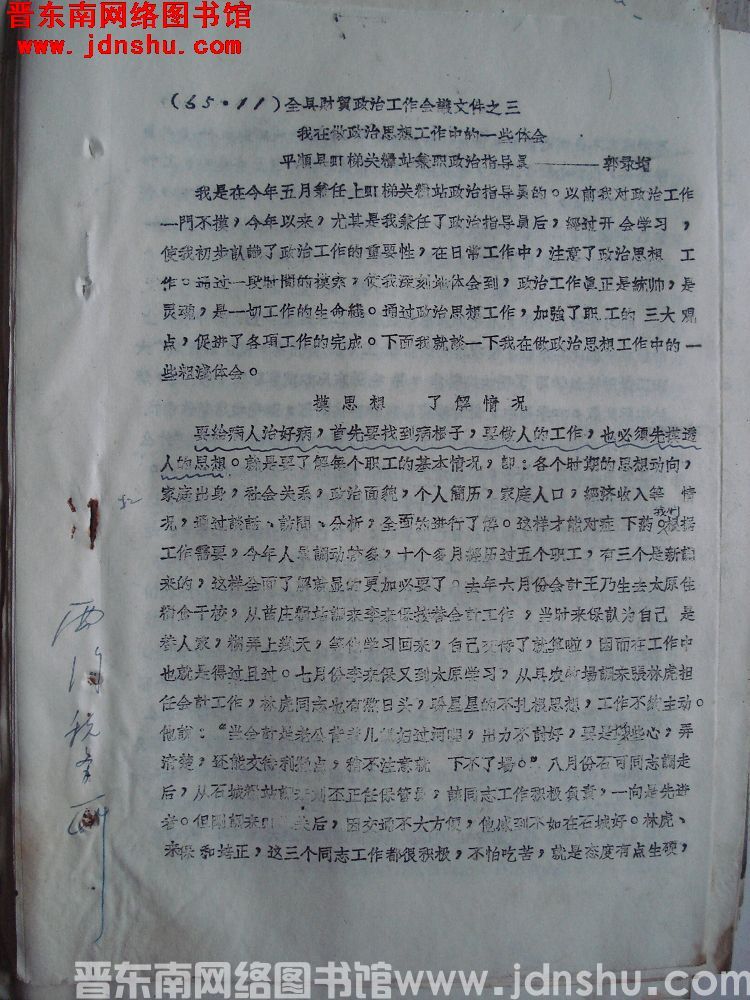 晋东南网络图书馆
www.jdnshu.com
(65.11)全县财贸政治工作会議文件之三
我在做政治思想工作中的一些体会
平順县町梯关糧站兼职政治指导員————郭录增
我是在今年五月兼任上町梯关糧站政治指导員的。以前我对政治工作
一門不摸，今年以来，尤其是我兼任了政治指导員后，經过开会学习，
使我初步訊識了政治工作的重要性，在日常工作中，注意了政治思想 工
作。通过一段时間的摸索，使我深刻地体会到，政治工作眞正是統帅，是
灵魂，是一切工作的生命綫。通过政治思想工作，加強了职工的 三大 观
点，促进了各項工作的完成。下面我就談一下我在做政治思想工作中的一
些粗浅体会。
摸思想 了解情况
要給病人治好病，首先要找到病根子，要做人的工作，也必须先摸透
人的思想。就是要了解每个职工的基本情况，即：各个时期的思想动向，
家庭出身，社会关系，政治面貌，个人簡历，家庭人口，經济收入等 情
况，通过談話、訪問、分析，全面的进行了解。这样才能对症 下药。根据
我们
工作需要，今年人員調动較多，十个多月經历过五个职工，有三个是新調
来的，这样全面了解就显的更加必要了。去年六月份会計王乃生去太原住
粮食干校，从苗庄糧站調来李来保接替会計工作，当时来保訊为自己 是
替人家，糊弄上幾天，等他学习回来，自己交待了就算啦，因而在工作中
也就是得过且过。七月份李来保又到太原学习，从县农牧場調来張林虎担
任会計工作，林虎同志也有熬日头，盼星星的不扎根思想，工作不够主动。
他說："当会計是老公背着儿媳妇过河哩，出力不討好，要是操些心，弄
清楚，还能交待利洒点，稍不注意就 下不了場。" 八月份石可同志調走
后，从石城糧站調来刘丕正任保管員，該同志工作积极負責，一向是先进
者。但剛調来町梯关后，因交通不大方便，他感到不如在石城好。林虎、
来保 和丕正，这三个同志工作都很积极，不怕吃苦，就是态度有点生硬，
52
晋东南网络图书馆www.jdnshu.com